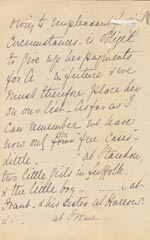 owing to unpleasant
circumstances - is obliged
to give up her payments
for A - in future & we
must therefore place her
on our list. As far as I
can remember we have
now only four "free cases" -
Little at Clandon,
two little girls in Suffolk
& the little boy at
Frant. & his sister at Harrow.
at Frant